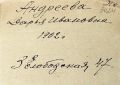 Андреева
Дарья Ивановна
1902 г.
3 Слободская, 47